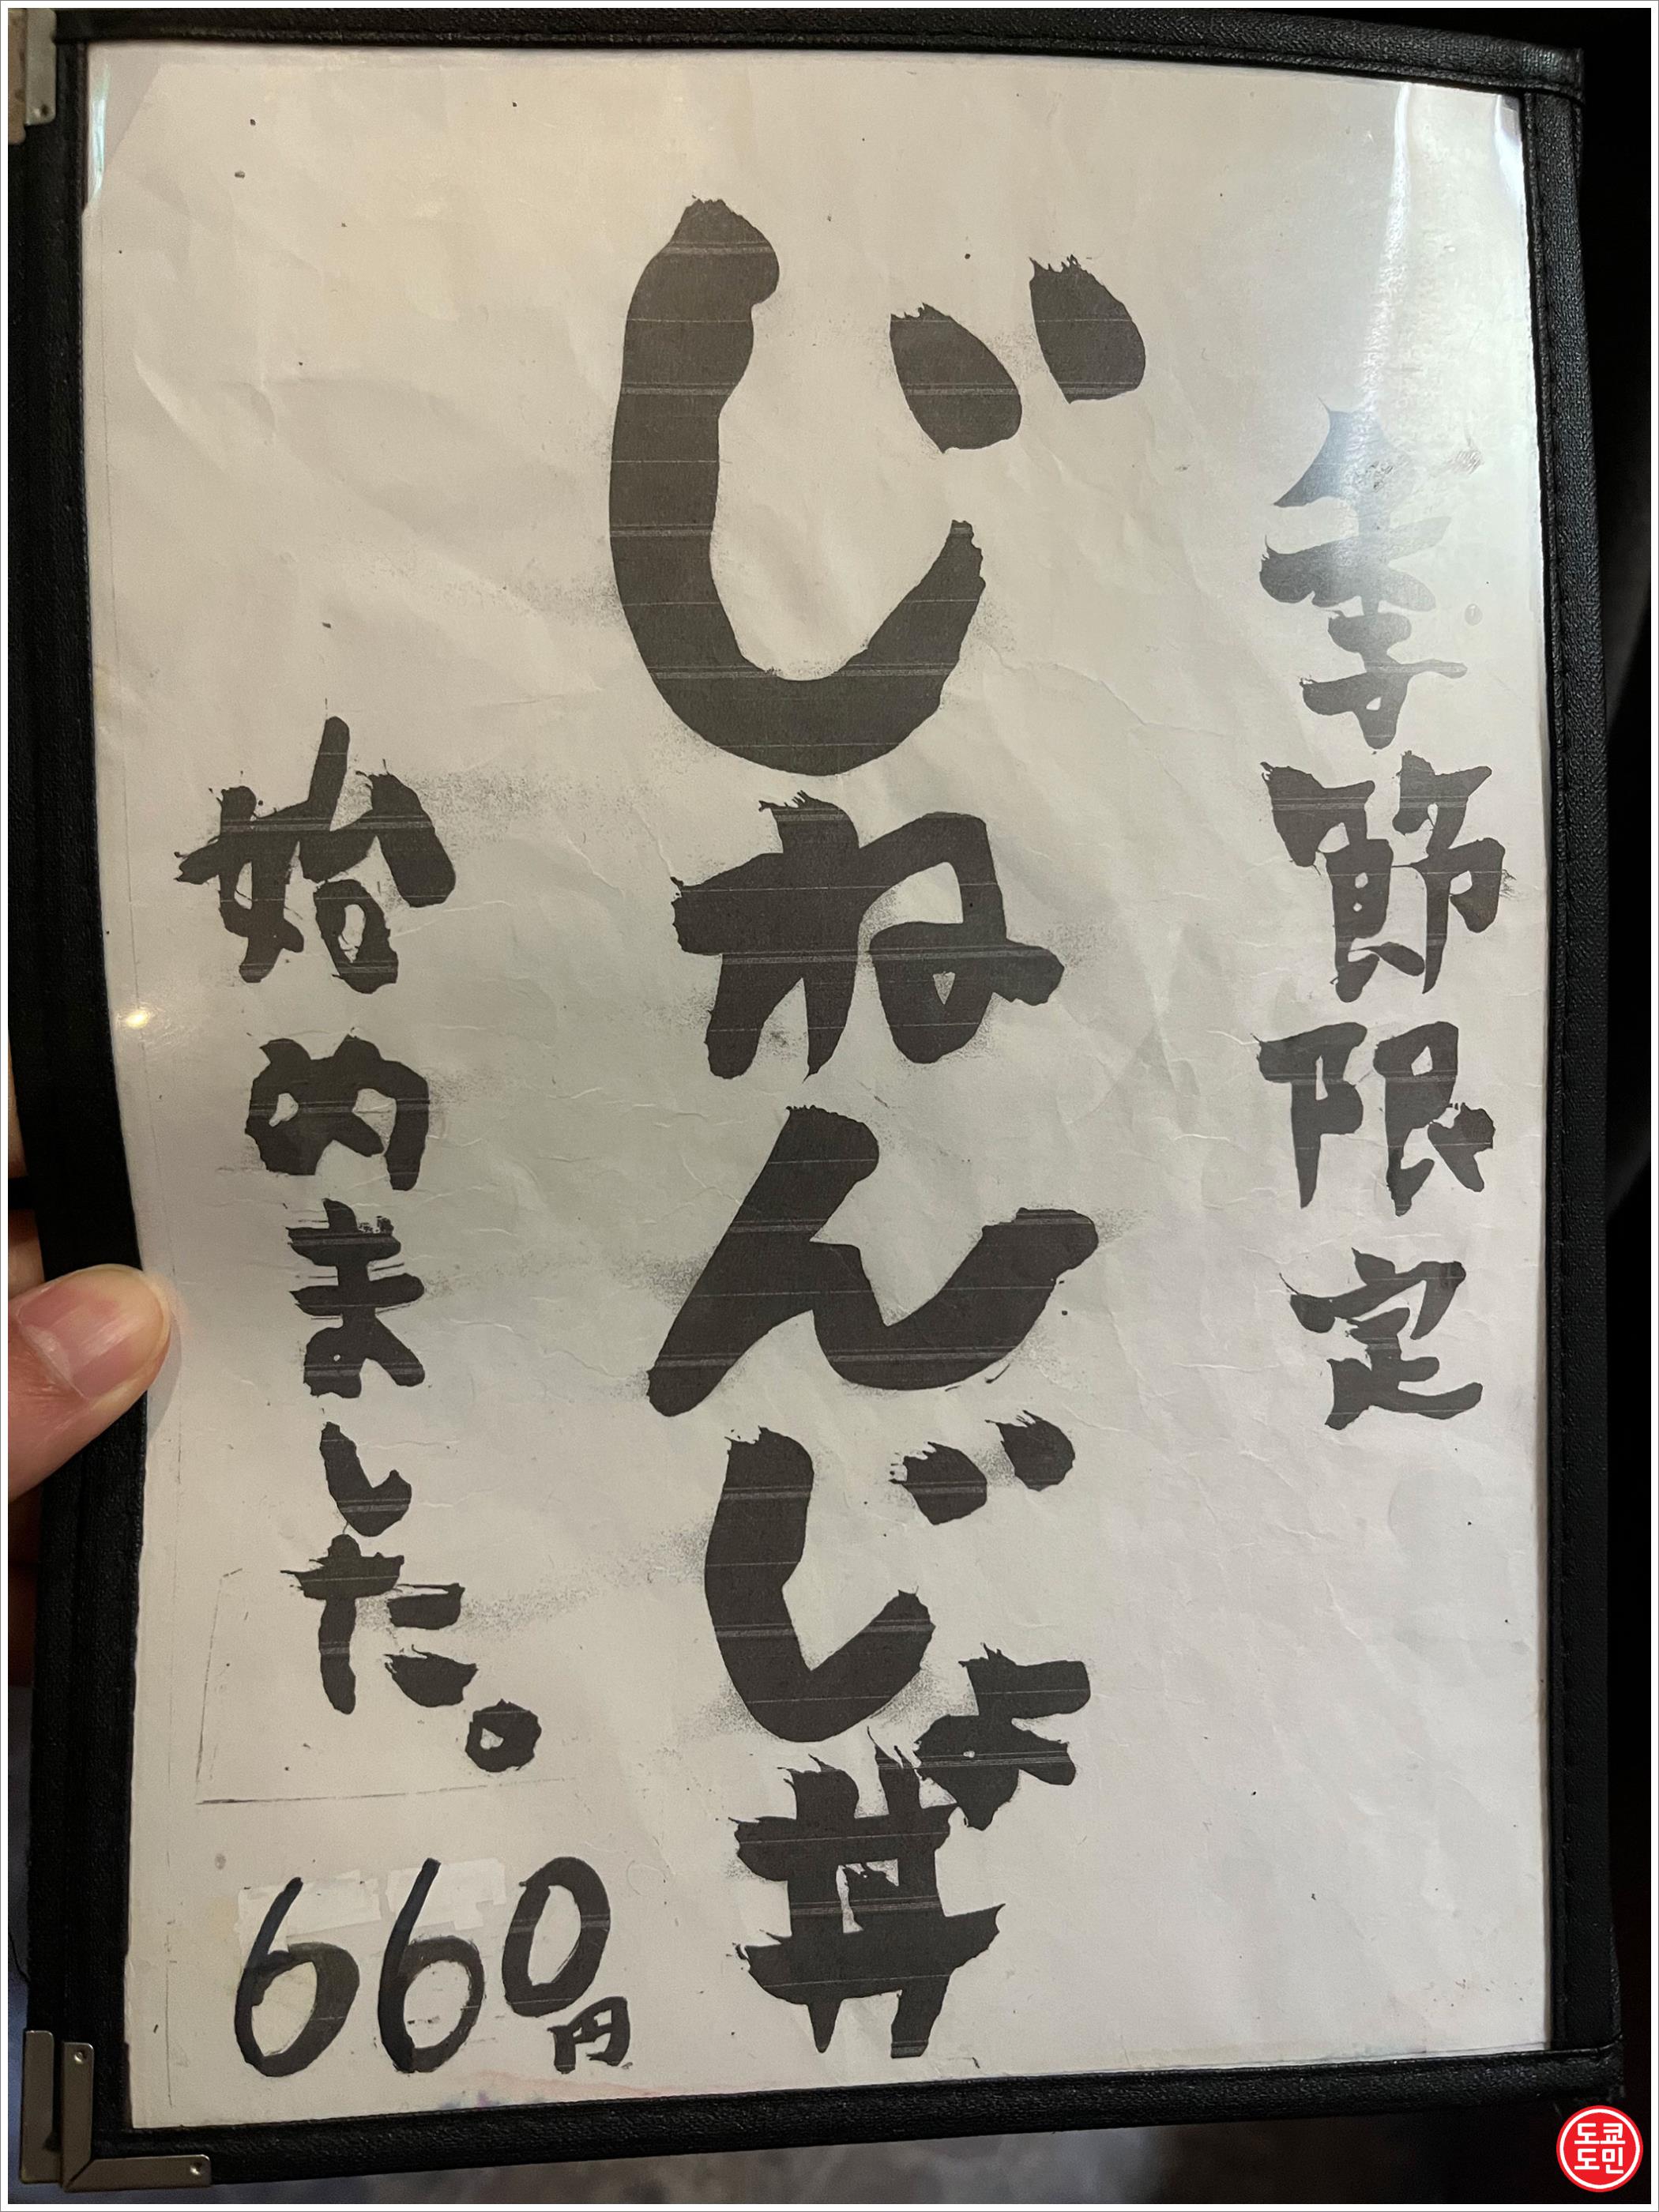 季節限定
じねんじょ丼
始めました。
660円
도쿄
도민